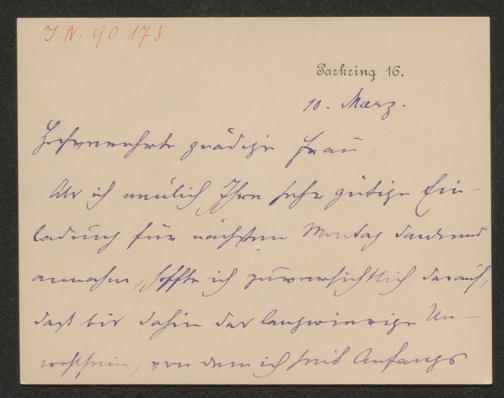 J.N. 90.178
Parkring 16.
10. März.
Hochverehrte gnädige Frau
Als ich neulich Ihre sehr gütige Ein-
ladung für nächsten Montag dankend
annahm, hoffte ich zuversichtlich darauf,
daß bis dahin das langwierige Un-
wohlsein, von dem ich seit Anfangs